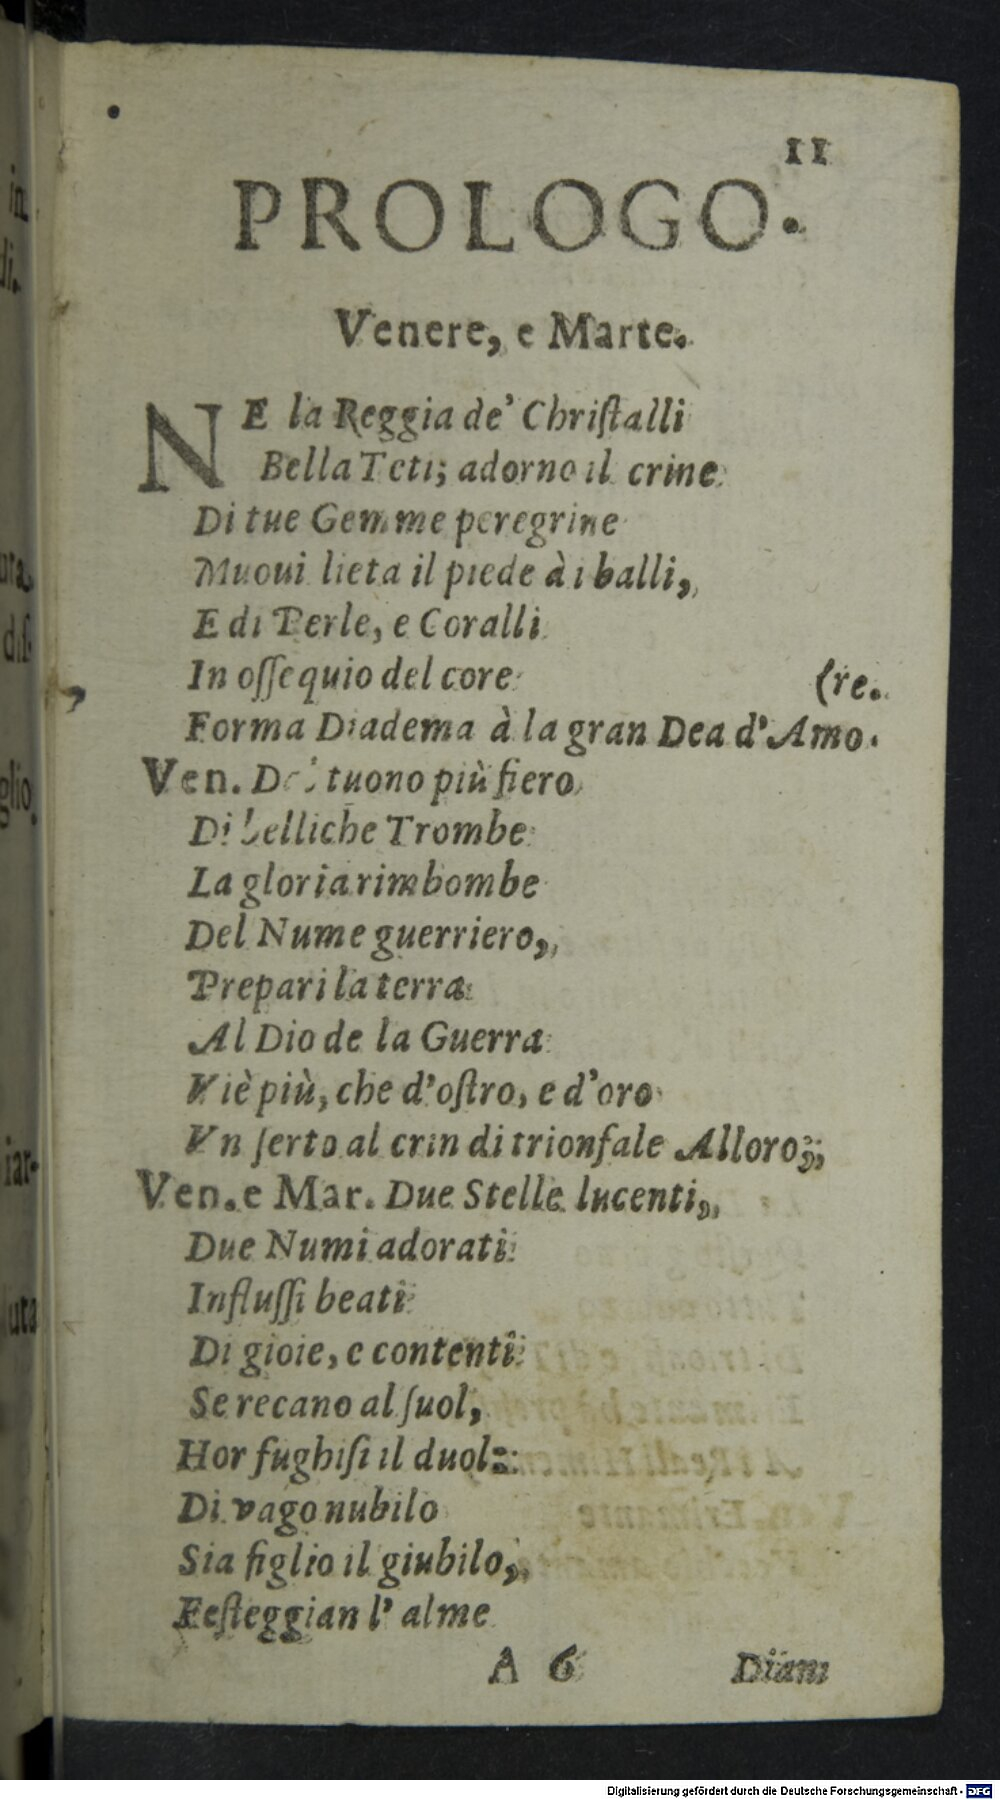 11
PROLOGO.
Venere, e Marte.
NE la Reggia de' Chriſtalli
Bella Teti; adorno il crine
Di tue Gemme peregrine
Muoui lieta il piede à i balli,
E di Perle, e Coralli
In oſſequio del core
(re.
Forma Diadema à la gran Dea d'Amo.
Ven. Del tuono più fiero
Di belliche Trombe
La gloria rimbombe
Del Nume guerriero,
Prepari la terra
Al Dio de la Guerra
Viè più, che d'oſtro, e d'oro
Vn ſerto al crin di trionfale Alloro;
Ven. e Mar. Due Stelle lucenti,
Due Numi adorati
Influſſi beati
Di gioie, e contenti
Se recano al ſuol,
Hor fughiſi il duol:
Di vago nubilo
Sia figlio il giubilo,
Feſteggian l' alme
A 6 Diam
in
di.
ura,
diſ-
glio
iar-
uta
Digitalisierung gefördert durch die Deutsche Forschungsgemeinschaft - DFG